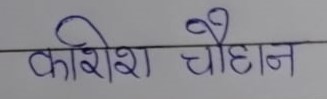 कशिश चौहान